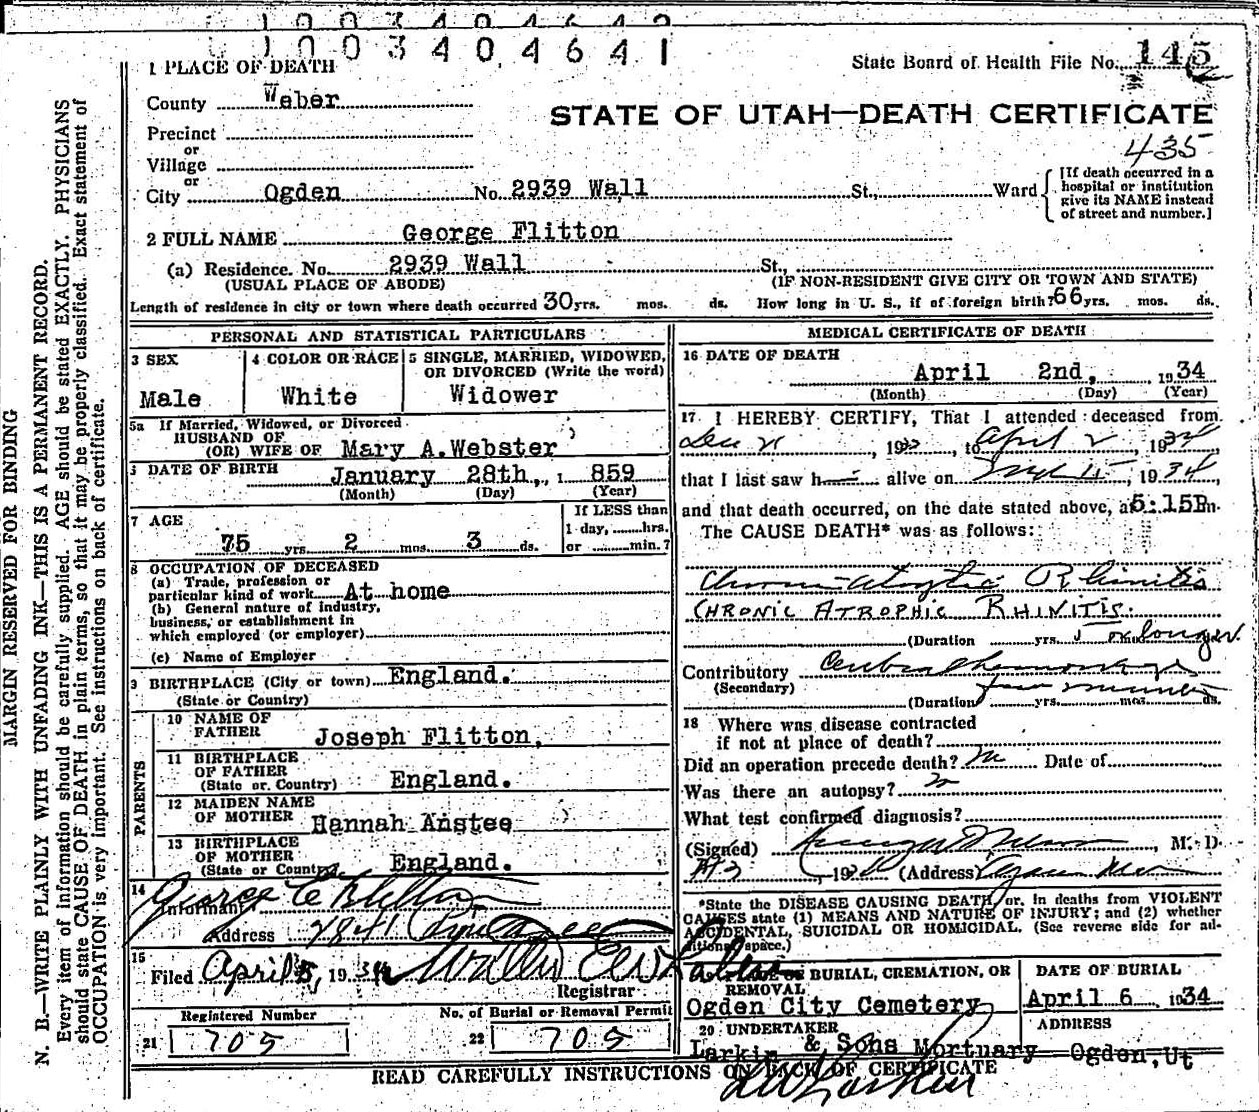 1003404642
1003404641
1 PLACE OF DEATH
State Board of Health File No. 145
County Weber
STATE OF UTAH—DEATH CERTIFICATE
Precinct
or
435
Village
or
City Ogden No. 2939 Wall St., Ward
[If death occurred in a
hospital or institution
give its NAME instead
of street and number.]
2 FULL NAME George Flitton
(a) Residence. No. 2939 Wall St.,
(USUAL PLACE OF ABODE) (IF NON-RESIDENT GIVE CITY OR TOWN AND STATE)
Length of residence in city or town where death occurred 30 yrs. mos. ds. How long in U. S., if of foreign birth? 66 yrs. mos. ds.
PERSONAL AND STATISTICAL PARTICULARS
3 SEX
Male
4 COLOR OR RACE
White
5 SINGLE, MARRIED, WIDOWED,
OR DIVORCED (Write the word)
Widower
5a If Married, Widowed, or Divorced
HUSBAND OF
(OR) WIFE OF Mary A.Webster
DATE OF BIRTH January 28th, 1859
(Month) (Day) (Year)
7 AGE
75 yrs. 2 mos. 3 ds.
If LESS than
1 day, hrs.
or min.?
8 OCCUPATION OF DECEASED
(a) Trade, profession or
particular kind of work At home
(b) General nature of industry,
business, or establishment in
which employed (or employer)
(c) Name of Employer
9 BIRTHPLACE (City or town) England.
(State or Country)
PARENTS
10 NAME OF
FATHER Joseph Flitton,
11 BIRTHPLACE
OF FATHER
(State or Country) England.
12 MAIDEN NAME
OF MOTHER Hannah Anstee
13 BIRTHPLACE
OF MOTHER
(State or Country) England.
14
Informant George E Flitton
Address 2841
15
Filed April 5, 1934 Walter
Registrar
Registered Number
21 705
No. of Burial or Removal Permit
22 705
MEDICAL CERTIFICATE OF DEATH
16 DATE OF DEATH
April 2nd, 1934
(Month) (Day) (Year)
17 I HEREBY CERTIFY, That I attended deceased from
Dec 21, 1933, to April 2, 1934
that I last saw h alive on 15, 1934,
and that death occurred, on the date stated above, at 5:15P m.
The CAUSE DEATH* was as follows:
Chronic Atrophic Rhinitis
CHRONIC ATROPHIC RHINITIS.
(Duration yrs. 5 or longer.
Contributory Cerebral hemorrhage
(Secondary)
(Duration few minutes yrs. mos. ds.
18 Where was disease contracted
if not at place of death?
Did an operation precede death? no Date of
Was there an autopsy? no
What test confirmed diagnosis?
(Signed) , M. D.
, 19 (Address)
*State the DISEASE CAUSING DEATH, or, in deaths from VIOLENT
CAUSES state (1) MEANS AND NATURE OF INJURY; and (2) whether
ACCIDENTAL, SUICIDAL OR HOMICIDAL. (See reverse side for ad-
ditional space.)
19 PLACE OF BURIAL, CREMATION, OR
REMOVAL
Ogden City Cemetery
DATE OF BURIAL
April 6 1934
20 UNDERTAKER
Larkin & Sons Mortuary
ADDRESS
Ogden, Ut
READ CAREFULLY INSTRUCTIONS ON BACK OF CERTIFICATE
MARGIN RESERVED FOR BINDING
N. B.—WRITE PLAINLY WITH UNFADING INK—THIS IS A PERMANENT RECORD.
Every item of information should be carefully supplied. AGE should be stated EXACTLY. PHYSICIANS
should state CAUSE OF DEATH in plain terms, so that it may be properly classified. Exact statement of
OCCUPATION is very important. See instructions on back of certificate.